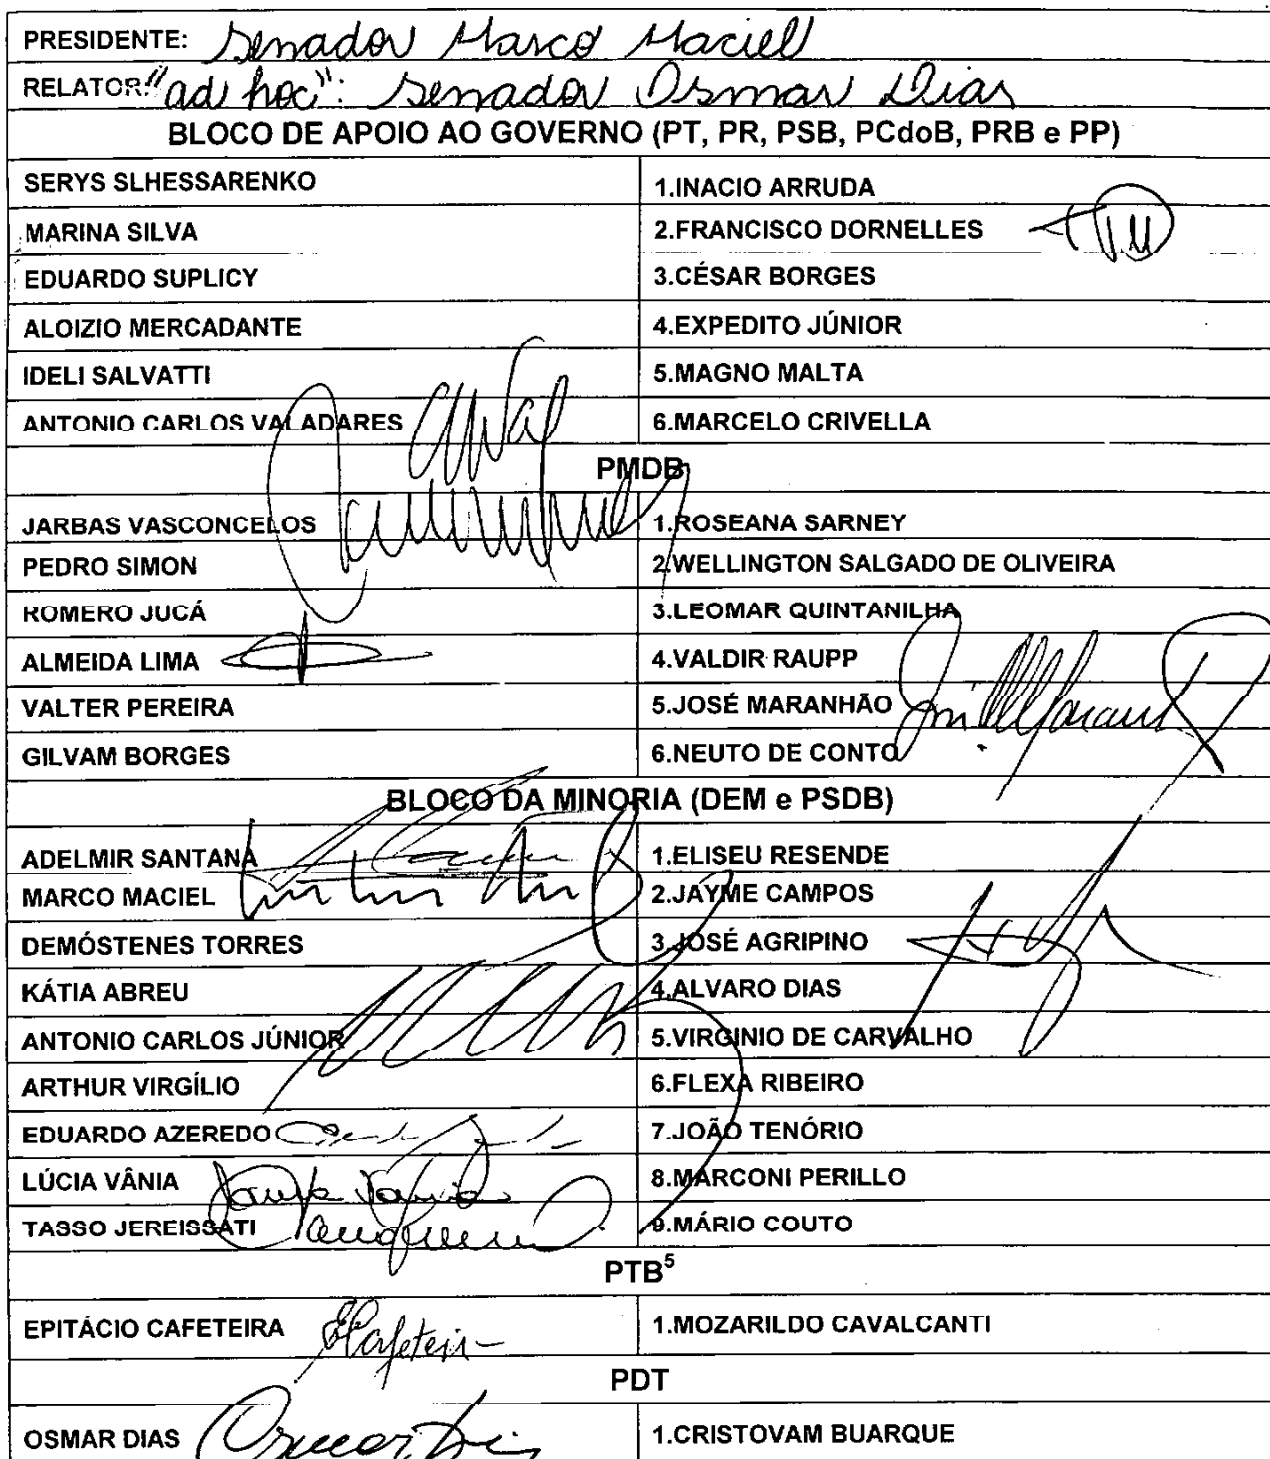 PRESIDENTE: Senador Marco Maciel
RELATOR: "ad hoc": Senador Osmar Dias
BLOCO DE APOIO AO GOVERNO (PT, PR, PSB, PCdoB, PRB e PP)
SERYS SLHESSARENKO 1.INACIO ARRUDA
MARINA SILVA 2.FRANCISCO DORNELLES
EDUARDO SUPLICY 3.CÉSAR BORGES
ALOIZIO MERCADANTE 4.EXPEDITO JÚNIOR
IDELI SALVATTI 5.MAGNO MALTA
ANTONIO CARLOS VALADARES 6.MARCELO CRIVELLA
PMDB
JARBAS VASCONCELOS 1.ROSEANA SARNEY
PEDRO SIMON 2.WELLINGTON SALGADO DE OLIVEIRA
ROMERO JUCÁ 3.LEOMAR QUINTANILHA
ALMEIDA LIMA 4.VALDIR RAUPP
VALTER PEREIRA 5.JOSÉ MARANHÃO
GILVAM BORGES 6.NEUTO DE CONTO
BLOCO DA MINORIA (DEM e PSDB)
ADELMIR SANTANA 1.ELISEU RESENDE
MARCO MACIEL 2.JAYME CAMPOS
DEMÓSTENES TORRES 3.JOSÉ AGRIPINO
KÁTIA ABREU 4.ALVARO DIAS
ANTONIO CARLOS JÚNIOR 5.VIRGINIO DE CARVALHO
ARTHUR VIRGÍLIO 6.FLEXA RIBEIRO
EDUARDO AZEREDO 7.JOÃO TENÓRIO
LÚCIA VÂNIA 8.MARCONI PERILLO
TASSO JEREISSATI 9.MÁRIO COUTO
PTB⁵
EPITÁCIO CAFETEIRA ECafeteira 1.MOZARILDO CAVALCANTI
PDT
OSMAR DIAS Osmar Dias 1.CRISTOVAM BUARQUE